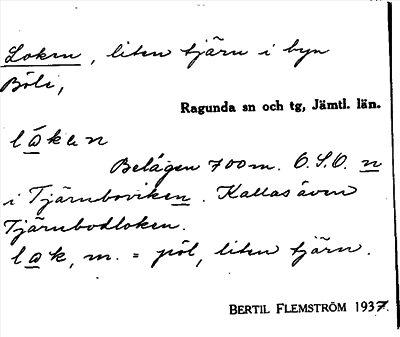 Loken, liten tjärn i byn
Böle,
Ragunda sn och tg, Jämtl. län.
låken
Belägen 700m. O.S.O. n
i Tjärnboviken. Kallas även
Tjärnbodloken.
lak, m. = pöl, liten tjärn.
BERTIL FLEMSTRÖM 1937.